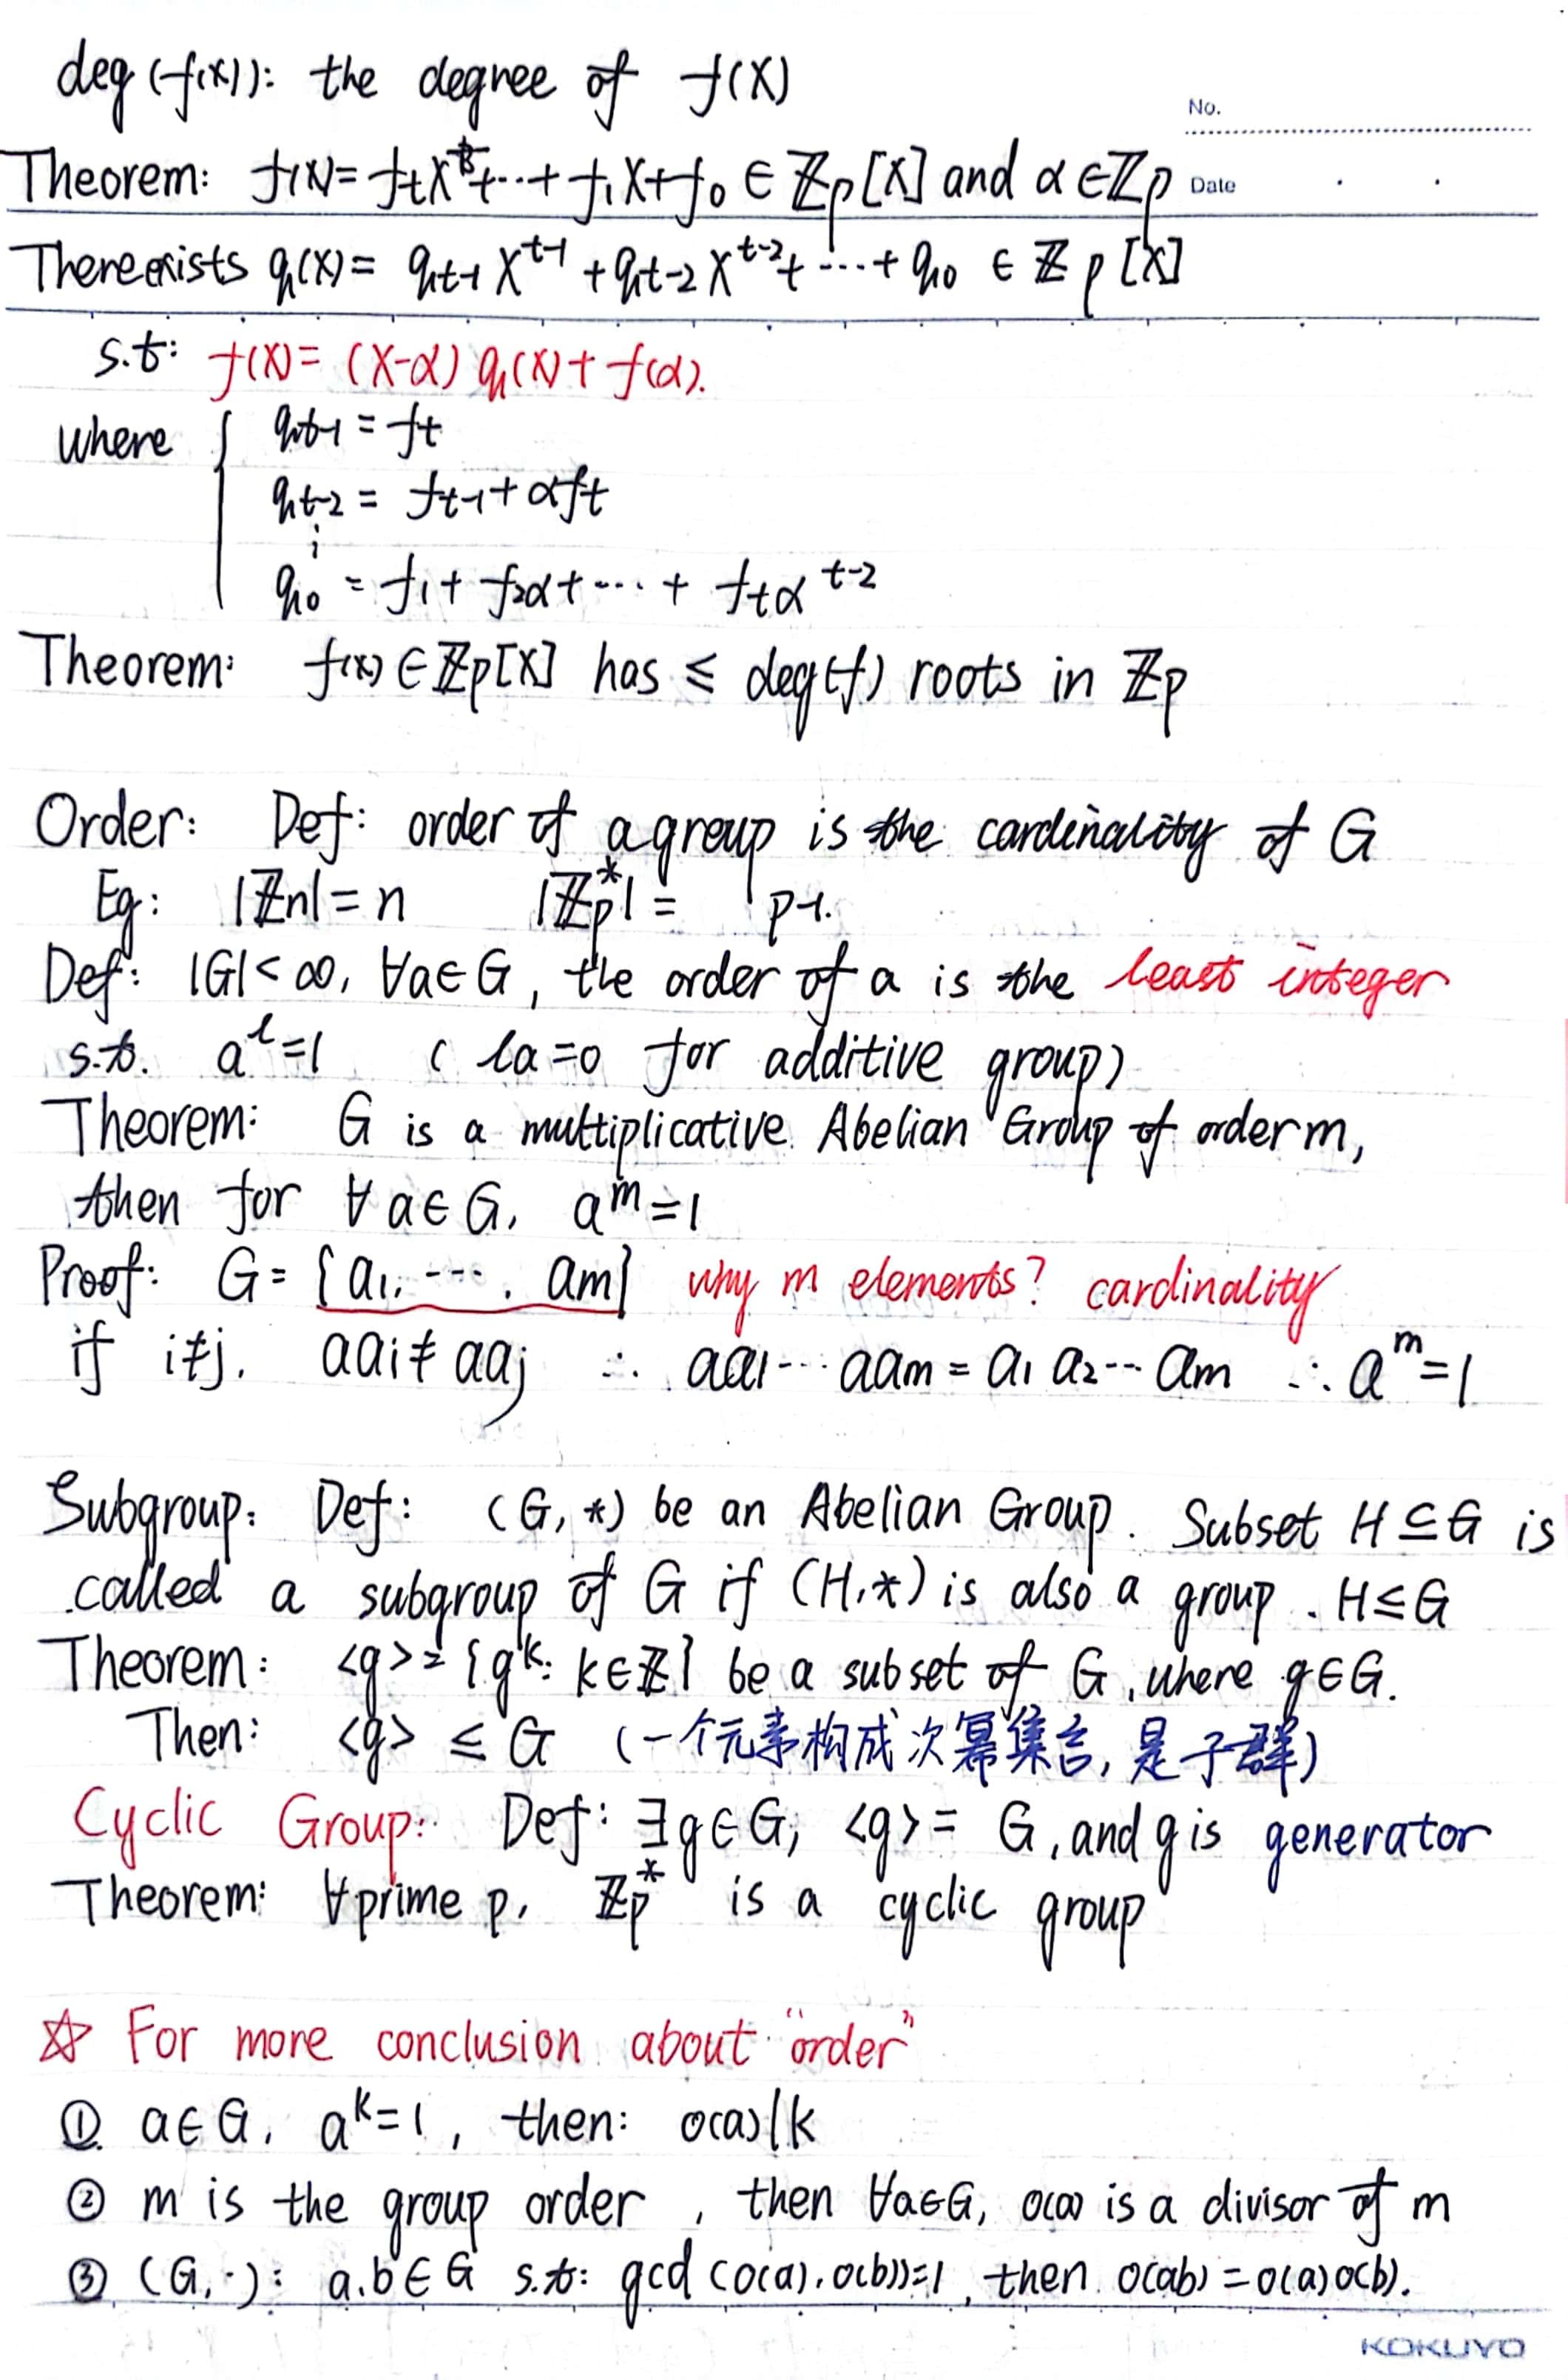 deg(f(x)): the degree of f(X)
No.
Theorem: f(X)= f_t X^t+···+ f_1X+f_0 ∈ ℤ_p[X] and α∈ℤ_p
Date
There exists q(X)= q_{t-1} X^{t-1} + q_{t-2} X^{t-2}+ ···+ q_0 ∈ ℤ_p [X]
s.t: f(X)= (X-α) q(X)+ f(α).
where { q_{t-1} = f_t
q_{t-2} = f_{t-1}+αf_t
⋮
q_0 = f_1+ f_2α+ ··· + f_tα^{t-2}
Theorem: f(x) ∈ ℤ_p[X] has ≤ deg(f) roots in ℤ_p
Order: Def: order of a group is the cardinality of G
Eg: |ℤ_n|= n |ℤ_p^*| = p-1.
Def: |G|<∞, ∀a∈G, the order of a is the least integer
s.t. a^l=1 ( la=0 for additive group)
Theorem: G is a multiplicative Abelian Group of order m,
then for ∀a∈G, a^m=1
Proof: G= {a_1, ···, a_m} why m elements? cardinality
if i≠j, aa_i≠aa_j ∴ aa_1···aa_m = a_1 a_2··· a_m ∴ a^m=1
Subgroup: Def: (G,*) be an Abelian Group. Subset H⊆G is
called a subgroup of G if (H,*) is also a group. H≤G
Theorem: <g>= {g^k: k∈ℤ} be a subset of G, where g∈G.
Then: <g> ≤ G (一个元素构成次幂集合,是子群)
Cyclic Group: Def: ∃g∈G, <g>= G, and g is generator
Theorem: ∀prime p, ℤ_p^* is a cyclic group
☆ For more conclusion about "order"
① a∈G, a^k=1, then: o(a)|k
② m is the group order, then ∀a∈G, o(a) is a divisor of m
③ (G,·): a,b∈G s.t: gcd(o(a),o(b))=1, then o(ab)=o(a)o(b).
KOKUYO